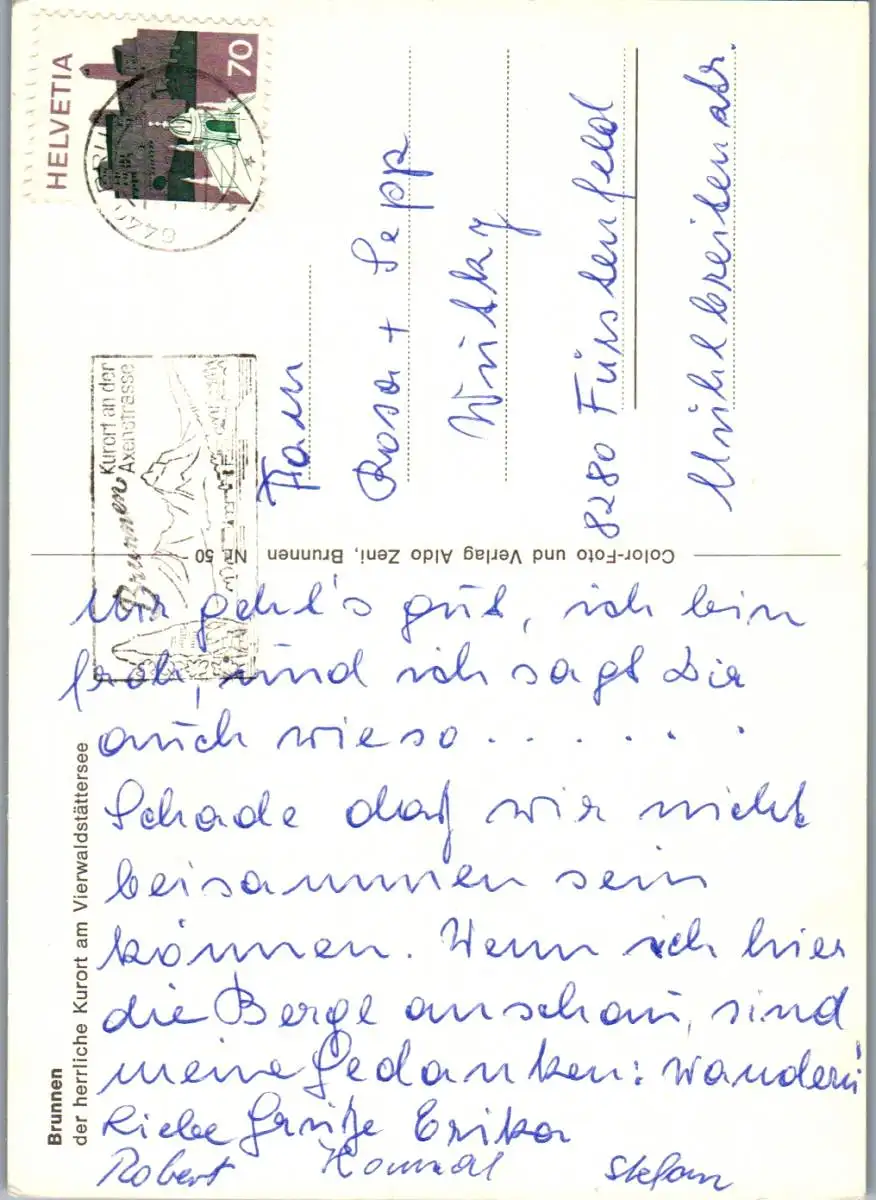 HELVETIA
70
6440
Brunnen
Kurort an der
Axenstrasse
Fam
Rosa + Sepp
Wutky
8280 Fürstenfeld
Mühlbreitenstr.
Color-Foto und Verlag Aldo Zeni, Brunnen Nr. 50
Brunnen
der herrliche Kurort am Vierwaldstättersee
Mir geht's gut, ich bin
froh, und ich sagt Dir
auch wieso . . . . . .
Schade daß wir nicht
beisammen sein
können. Wenn ich hier
die Berge anschau, sind
meine Gedanken: wandern
Liebe Grüße Erika
Robert Konrad Stefan